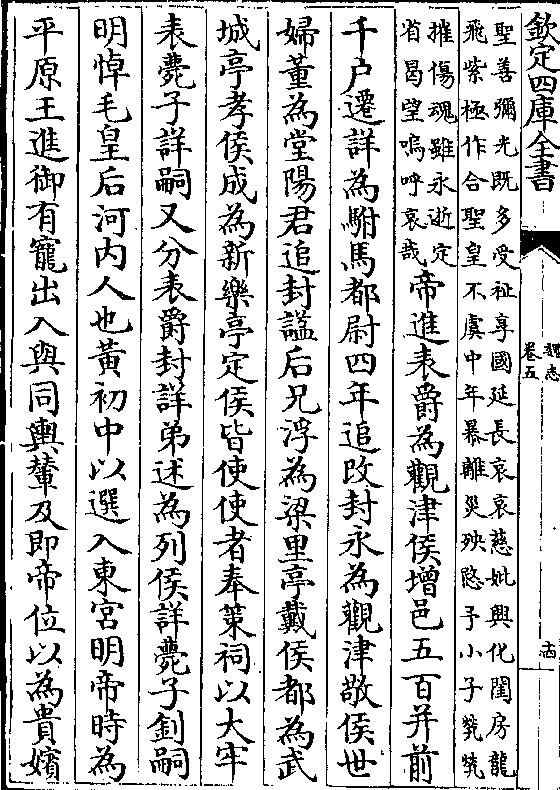 欽定四庫全書
魏志
卷五
聖善彌光既多受祉享國延長哀哀慈妣興化閨房龍
飛紫極作合聖皇不虞中年暴離災殃愍予小子煢煢
摧傷魂雖永逝定
省曷望嗚呼哀哉
帝進表爵為觀津侯增邑五百并前
千户遷詳為駙馬都尉四年追改封永為觀津敬侯世
婦董為堂陽君追封謚后兄浮為梁里亭戴侯都為武
城亭孝侯成為新樂亭定侯皆使使者奉策祠以大牢
表薨子詳嗣又分表爵封詳弟述為列侯詳薨子釗嗣
明悼毛皇后河内人也黄初中以選入東宮明帝時為
平原王進御有寵出入與同輿輦及即帝位以為貴嬪